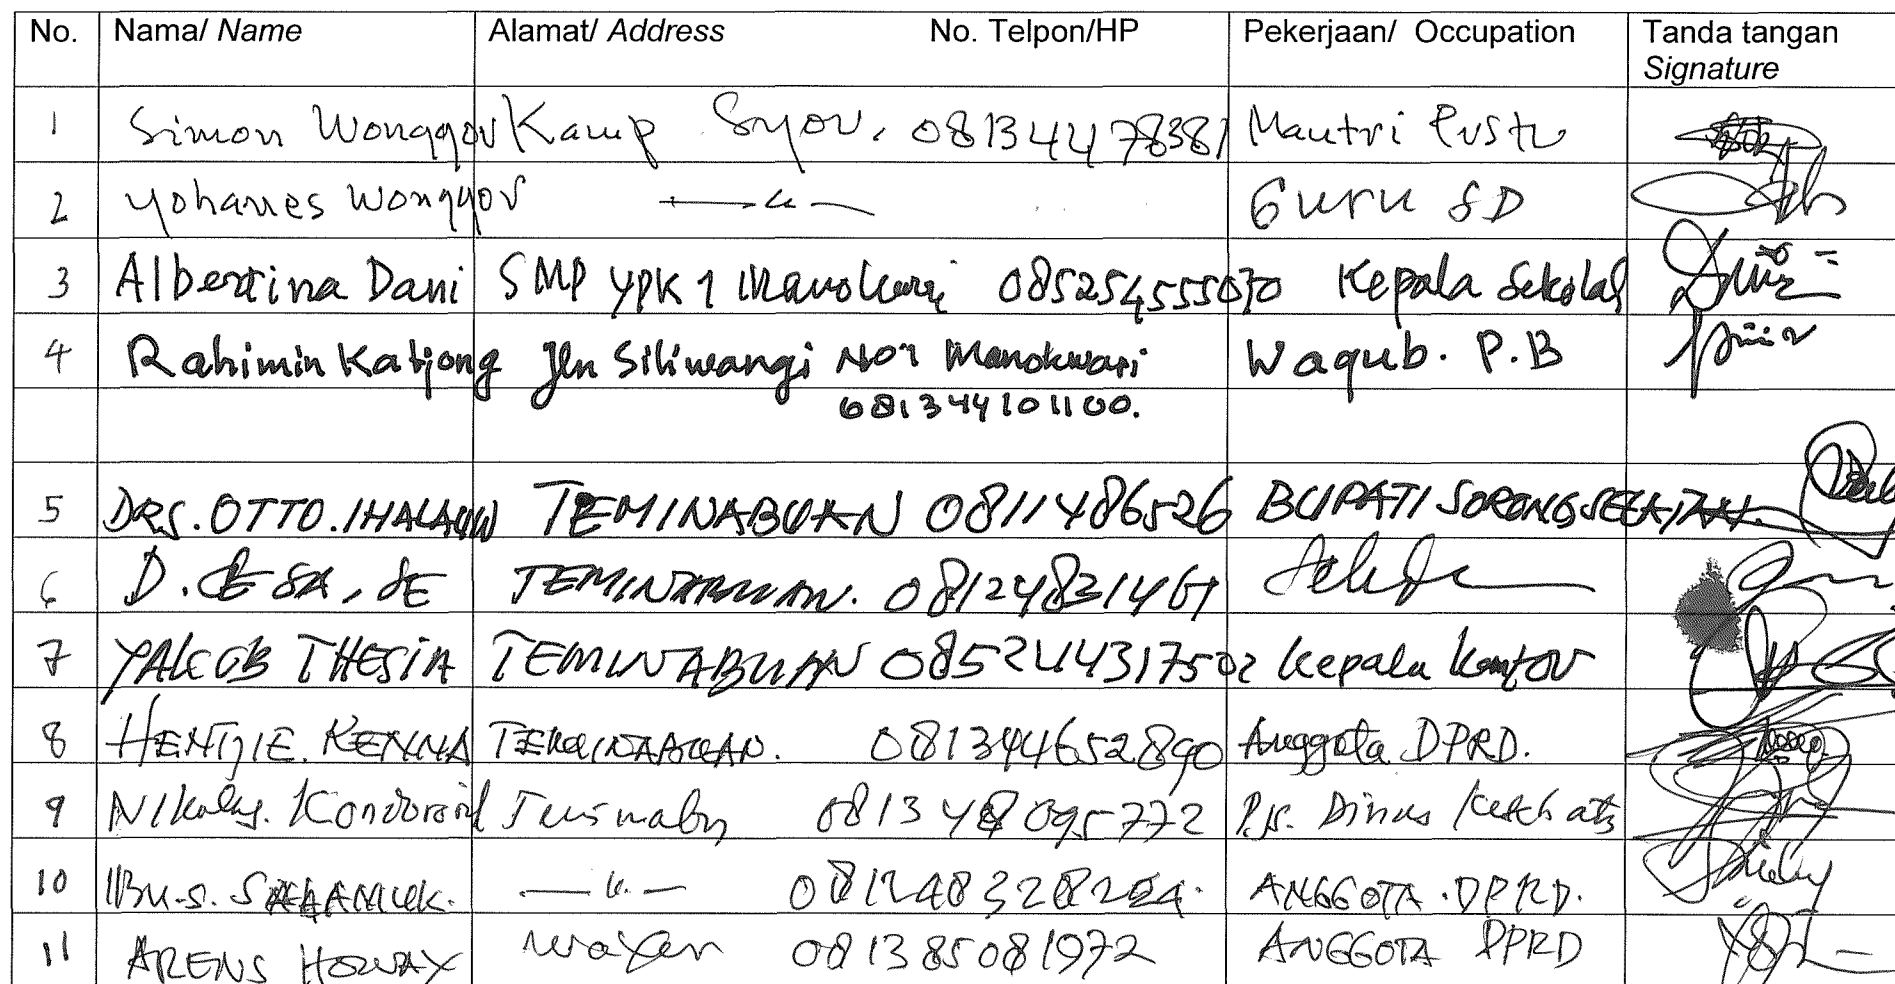 No. Nama/ Name Alamat/ Address No. Telpon/HP Pekerjaan/ Occupation Tanda tangan
Signature
1 Simon Wonggor Kamp Syou, 081344478381 Mantri Pustu
2 Yohanes Wonggor Guru SD
3 Albertina Dani SMP YPK 1 Manokwari 085254555070 Kepala Sekolah
4 Rahimin Katjong Jln Siliwangi No 1 Manokwari Wagub. P.B
081344101100.
5 DRS. OTTO. IHALAUW TEMINABUAN 0811486526 BUPATI SORONG SELATAN.
6 D. SE TEMINABUAN. 081248231461
7 YAKOB THESIA TEMINABUAN 085244317502 Kepala Kantor
8 HENTJIE. KENNA TEMINABUAN. 081344652890 Anggota DPRD.
9 Nikolas. 0813 Dinas
10 IBU. S. 081248328224. ANGGOTA. DPRD.
11 ARENS HOWAY 081385081972 ANGGOTA DPRD